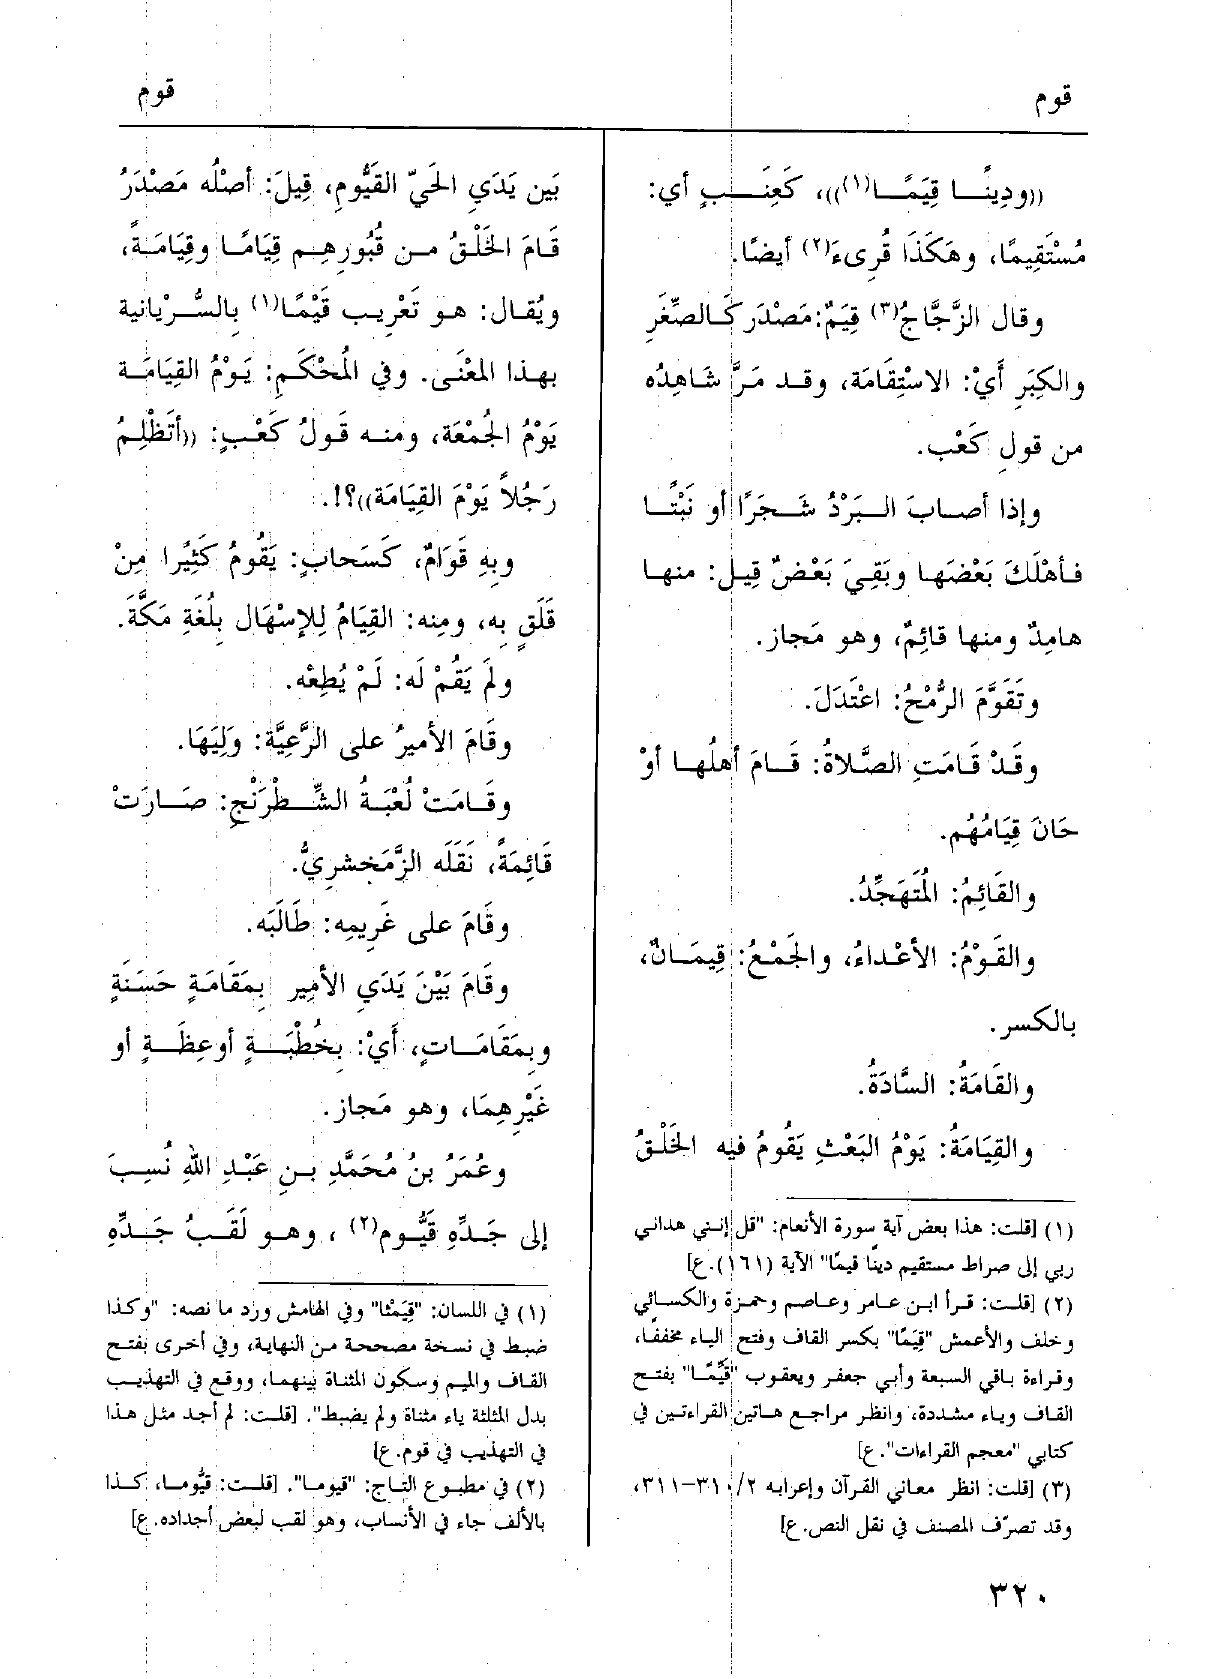 قوم
قوم
((ودِينًا قِيَمًا(١)))، كَعِنَبٍ أي:
مُسْتَقِيمًا، وهَكَذَا قُرِىءَ(٢) أيضًا.
وقال الزَّجَّاجُ(٣) قِيَمٌ: مَصْدَر كَالصِّغَرِ
والكِبَرِ أَيْ: الاسْتِقَامَة، وقد مَرَّ شَاهِدُه
من قولِ كَعْب.
وإذا أصابَ البَرْدُ شَجَرًا أو نَبْتًا
فأهْلَكَ بَعْضَها وبَقِيَ بَعْضٌ قِيل: منها
هامِدٌ ومنها قائِمٌ، وهو مَجاز.
وتَقَوَّمَ الرُّمْحُ: اعْتَدَلَ.
وقَدْ قَامَتِ الصَّلاةُ: قَامَ أهلُها أوْ
حَانَ قِيَامُهُم.
والقَائِمُ: المُتَهَجِّدُ.
والقَوْمُ: الأعْداءُ، والجَمْعُ: قِيمَانٌ،
بالكسر.
والقَامَةُ: السَّادَةُ.
والقِيَامَةُ: يَوْمُ البَعْثِ يَقُومُ فيه الخَلْقُ
(١) [قلت: هذا بعض آية سورة الأنعام: "قل إنني هداني
ربي إلى صراط مستقيم دينًا قيمًا" الآية (١٦١). ع]
(٢) [قلت: قرأ ابن عامر وعاصم وحمزة والكسائي
وخلف والأعمش "قِيَمًا" بكسر القاف وفتح الياء مخففًا،
وقراءة باقي السبعة وأبي جعفر ويعقوب "قَيِّمًا" بفتح
القاف وياء مشددة، وانظر مراجع هاتين القراءتين في
كتابي "معجم القراءات". ع]
(٣) [قلت: انظر معاني القرآن وإعرابه ٣١٠/٢-٣١١،
وقد تصرّف المصنف في نقل النص. ع]
بَين يَدَيِ الحَيّ القَيُّومِ، قِيلَ: أصْلُه مَصْدَرُ
قَامَ الخَلْقُ من قُبُورِهِم قِيَامًا وقِيَامَةً،
ويُقال: هو تَعْرِيب قَيْمًا(١) بالسُّرْيانية
بهذا المعْنَى. وفي المُحْكَمِ: يَوْمُ القِيَامَة
يَوْمُ الجُمْعَة، ومنه قَولُ كَعْبٍ: ((أتَظْلِمُ
رَجُلاً يَوْمَ القِيَامَة))؟!.
وبهِ قَوَامٌ، كَسَحابٍ: يَقُومُ كَثِيْرا مِنْ
قَلَقٍ به، ومِنه: القِيَامُ لِلإسْهَال بِلُغَةِ مَكَّةَ.
ولَم يَقُمْ لَه: لَمْ يُطِعْه.
وقَامَ الأميرُ على الرَّعِيَّة: وَلِيَهَا.
وقَامَتْ لُعْبَةُ الشِّطْرَنْجِ: صَارَتْ
قَائِمَةً، نَقَلَه الزَّمَخشرِيُّ.
وقَامَ على غَرِيمِه: طَالَبَه.
وقَامَ بَيْنَ يَدَيِ الأمِير بِمَقَامَةٍ حَسَنَةٍ
وبِمَقَامَاتٍ، أَيْ: بِخُطْبَةٍ أوعِظَةٍ أو
غَيْرِهِمَا، وهو مَجاز.
وعُمَرُ بنُ مُحَمَّدِ بنِ عَبْدِ اللهِ نُسِبَ
إلى جَدِّهِ قَيُّوم(٢)، وهو لَقَبُ جَدِّهِ
(١) في اللسان: "قِيَمْثا" وفي الهامش ورد ما نصه: "وكذا
ضبط في نسخة مصححة من النهاية، وفي أخرى بفتح
القاف والميم وسكون المثناة بينهما، ووقع في التهذيب
بدل المثلثة ياء مثناة ولم يضبط". [قلت: لم أجد مثل هذا
في التهذيب في قوم. ع]
(٢) في مطبوع التاج: "قيوما". [قلت: قيُّوما، كذا
بالألف جاء في الأنساب، وهو لقب لبعض أجداده. ع]
٣٢٠